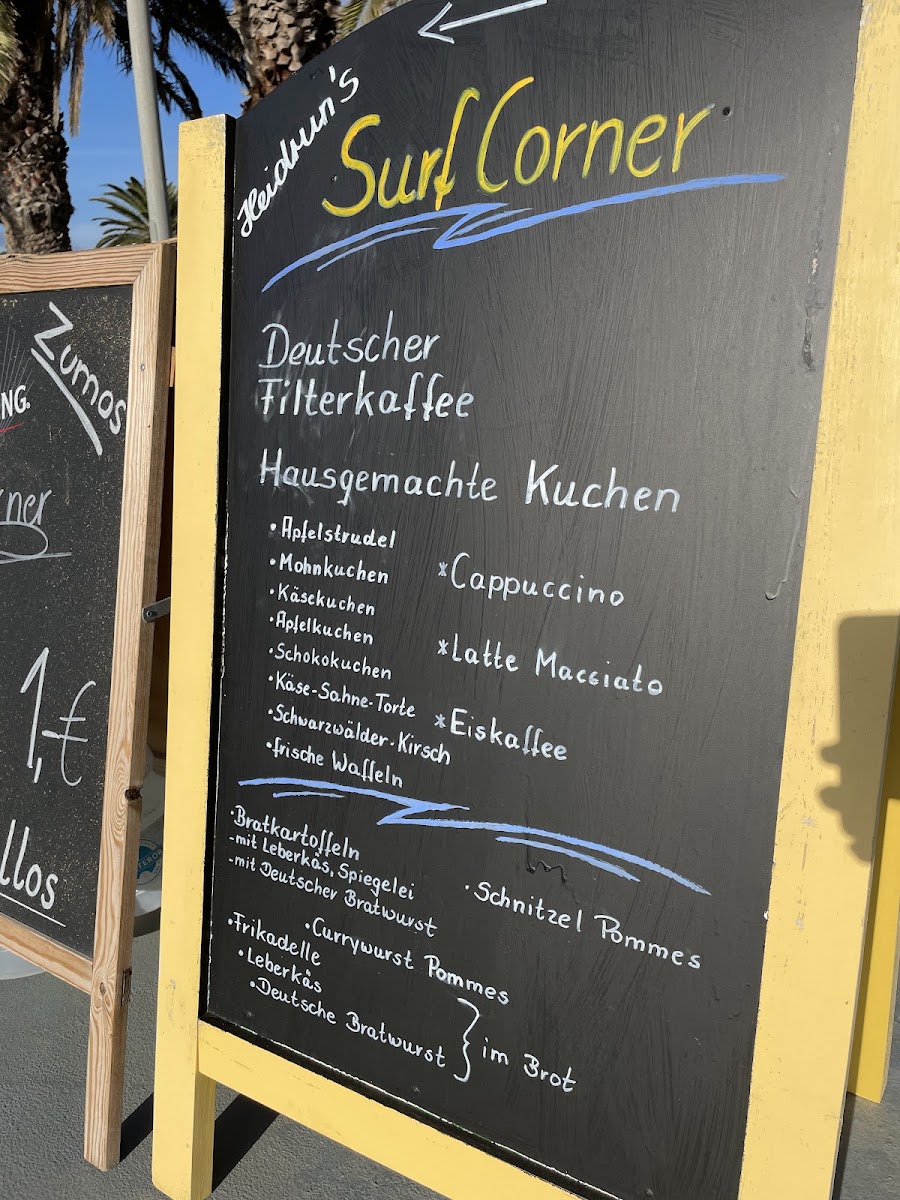 Heidrun's
Surf Corner
Deutscher
Filterkaffee
Hausgemachte Kuchen
•Apfelstrudel
•Mohnkuchen
•Käsekuchen
•Apfelkuchen
•Schokokuchen
•Käse-Sahne-Torte
•Schwarzwälder-Kirsch
•frische Waffeln
*Cappuccino
*Latte Macciato
*Eiskaffee
•Bratkartoffeln
-mit Leberkäs, Spiegelei
-mit Deutscher Bratwurst
•Schnitzel Pommes
•Currywurst Pommes
•Frikadelle
•Leberkäs
•Deutsche Bratwurst
im Brot
Zumos
NG.
ner
1,-€
llos